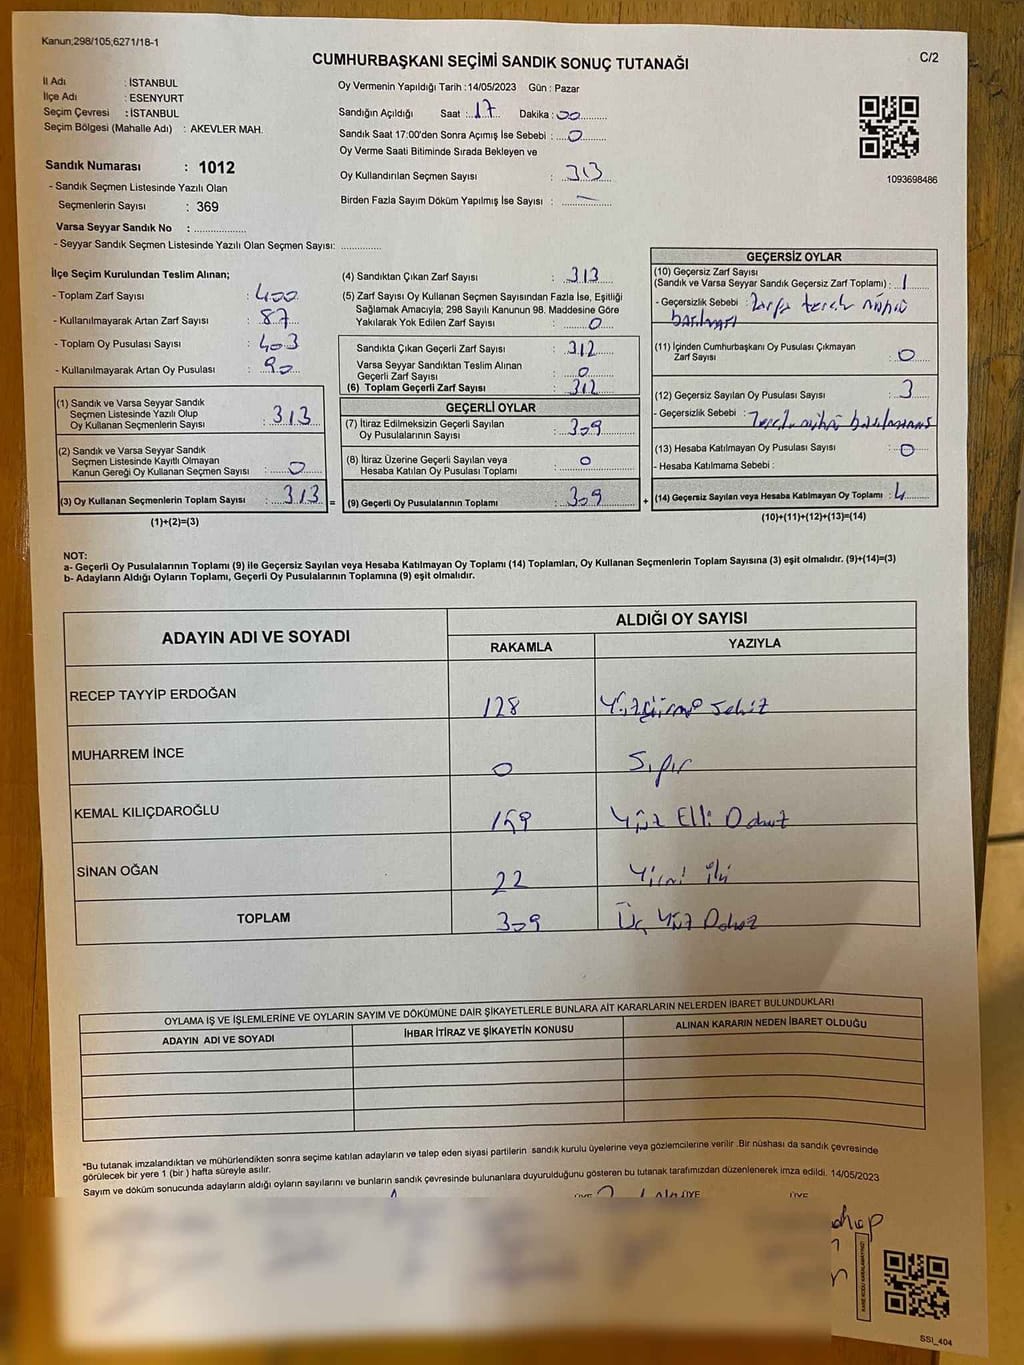 Kanun;298/105,6271/18-1
C/2
CUMHURBAŞKANI SEÇİMİ SANDIK SONUÇ TUTANAĞI
İl Adı : İSTANBUL
İlçe Adı : ESENYURT
Seçim Çevresi : İSTANBUL
Seçim Bölgesi (Mahalle Adı) : AKEVLER MAH.
Oy Vermenin Yapıldığı Tarih : 14/05/2023 Gün : Pazar
Sandığın Açıldığı Saat : 17 Dakika : 00
Sandık Saat 17:00'den Sonra Açımış İse Sebebi : 0
Oy Verme Saati Bitiminde Sırada Bekleyen ve
Oy Kullandırılan Seçmen Sayısı : 313
Birden Fazla Sayım Döküm Yapılmış İse Sayısı : —
1093698486
Sandık Numarası : 1012
- Sandık Seçmen Listesinde Yazılı Olan
Seçmenlerin Sayısı : 369
Varsa Seyyar Sandık No :
- Seyyar Sandık Seçmen Listesinde Yazılı Olan Seçmen Sayısı:
İlçe Seçim Kurulundan Teslim Alınan;
- Toplam Zarf Sayısı : 400
- Kullanılmayarak Artan Zarf Sayısı : 87
- Toplam Oy Pusulası Sayısı : 403
- Kullanılmayarak Artan Oy Pusulası : 90
(1) Sandık ve Varsa Seyyar Sandık
Seçmen Listesinde Yazılı Olup
Oy Kullanan Seçmenlerin Sayısı : 313
(2) Sandık ve Varsa Seyyar Sandık
Seçmen Listesinde Kayıtlı Olmayan
Kanun Gereği Oy Kullanan Seçmen Sayısı : 0
(3) Oy Kullanan Seçmenlerin Toplam Sayısı : 313 =
(1)+(2)=(3)
(4) Sandıktan Çıkan Zarf Sayısı : 313
(5) Zarf Sayısı Oy Kullanan Seçmen Sayısından Fazla İse, Eşitliği
Sağlamak Amacıyla; 298 Sayılı Kanunun 98. Maddesine Göre
Yakılarak Yok Edilen Zarf Sayısı : 0
Sandıkta Çıkan Geçerli Zarf Sayısı : 312
Varsa Seyyar Sandıktan Teslim Alınan
Geçerli Zarf Sayısı : 0
(6) Toplam Geçerli Zarf Sayısı : 312
GEÇERLİ OYLAR
(7) İtiraz Edilmeksizin Geçerli Sayılan
Oy Pusulalarının Sayısı : 309
(8) İtiraz Üzerine Geçerli Sayılan veya
Hesaba Katılan Oy Pusulası Toplamı : 0
(9) Geçerli Oy Pusulalarının Toplamı : 309 +
GEÇERSİZ OYLAR
(10) Geçersiz Zarf Sayısı
(Sandık ve Varsa Seyyar Sandık Geçersiz Zarf Toplamı) : 1
- Geçersizlik Sebebi : Zarfa tercih mührü
basılması
(11) İçinden Cumhurbaşkanı Oy Pusulası Çıkmayan
Zarf Sayısı : 0
(12) Geçersiz Sayılan Oy Pusulası Sayısı : 3
- Geçersizlik Sebebi : Tercih mührü basılmaması
(13) Hesaba Katılmayan Oy Pusulası Sayısı : 0
- Hesaba Katılmama Sebebi :
(14) Geçersiz Sayılan veya Hesaba Katılmayan Oy Toplamı : 4
(10)+(11)+(12)+(13)=(14)
NOT:
a- Geçerli Oy Pusulalarının Toplamı (9) ile Geçersiz Sayılan veya Hesaba Katılmayan Oy Toplamı (14) Toplamları, Oy Kullanan Seçmenlerin Toplam Sayısına (3) eşit olmalıdır. (9)+(14)=(3)
b- Adayların Aldığı Oyların Toplamı, Geçerli Oy Pusulalarının Toplamına (9) eşit olmalıdır.
ADAYIN ADI VE SOYADI
ALDIĞI OY SAYISI
RAKAMLA YAZIYLA
RECEP TAYYİP ERDOĞAN 128 Yüzyirmi Sekiz
MUHARREM İNCE 0 Sıfır
KEMAL KILIÇDAROĞLU 159 Yüz Elli Dokuz
SİNAN OĞAN 22 Yirmi iki
TOPLAM 309 Üç Yüz Dokuz
OYLAMA İŞ VE İŞLEMLERİNE VE OYLARIN SAYIM VE DÖKÜMÜNE DAİR ŞİKAYETLERLE BUNLARA AİT KARARLARIN NELERDEN İBARET BULUNDUKLARI
ADAYIN ADI VE SOYADI İHBAR İTİRAZ VE ŞİKAYETİN KONUSU ALINAN KARARIN NEDEN İBARET OLDUĞU
*Bu tutanak imzalandıktan ve mühürlendikten sonra seçime katılan adayların ve talep eden siyasi partilerin sandık kurulu üyelerine veya gözlemcilerine verilir .Bir nüshası da sandık çevresinde
görülecek bir yere 1 (bir ) hafta süreyle asılır.
Sayım ve döküm sonucunda adayların aldığı oyların sayılarını ve bunların sandık çevresinde bulunanlara duyurulduğunu gösteren bu tutanak tarafımızdan düzenlenerek imza edildi. 14/05/2023
ÜYE ÜYE ÜYE
KARE KODU KARALAMAYINIZ!
SSI_404